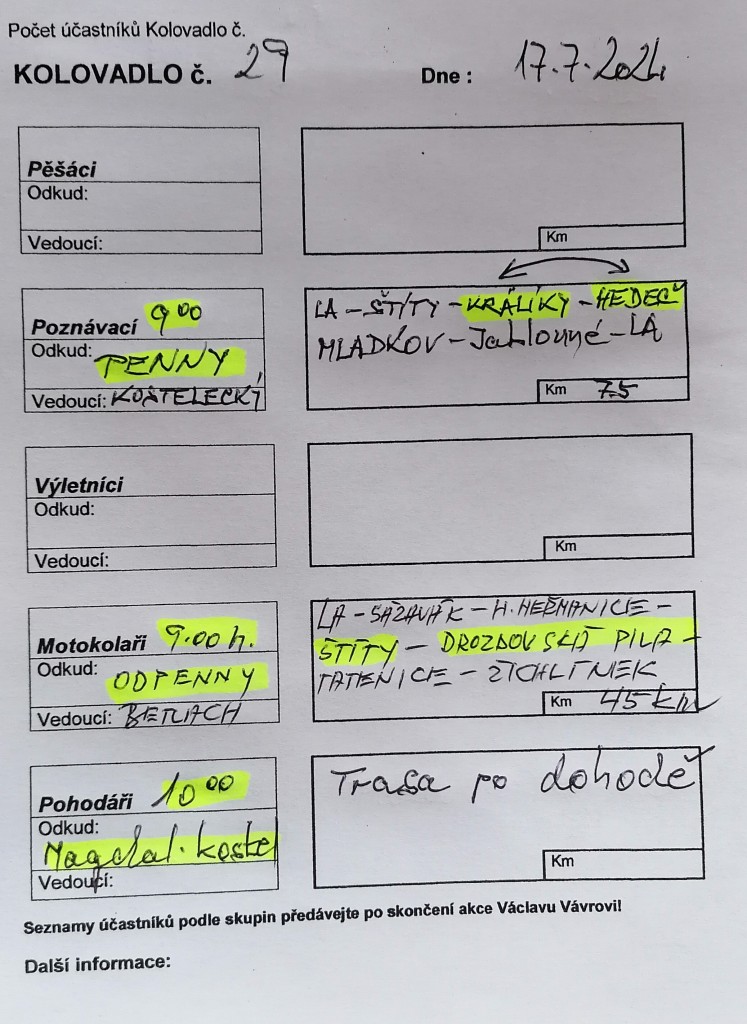 Počet účastníků Kolovadlo č.
KOLOVADLO č. 29 Dne : 17.7.2024
Pěšáci
Odkud:
Vedoucí:
Km
Poznávací 9 00
Odkud: PENNY
Vedoucí: KOSTELECKÝ
LA – ŠTÍTY – KRÁLÍKY – HEDEČ
MLADKOV – Jablonné – LA
Km 75
Výletníci
Odkud:
Vedoucí:
Km
Motokolaři 9.00 h.
Odkud: OD PENNY
Vedoucí: BETLACH
LA – SÁZAVÁK – H. HEŘMANICE –
ŠTÍTY – DROZDOVSKÁ PILA –
TATENICE – ŽICHLÍNEK
Km 45 km
Pohodáři 10 00
Odkud:
Magdal. kostel
Vedoucí:
Trasa po dohodě
Km
Seznamy účastníků podle skupin předávejte po skončení akce Václavu Vávrovi!
Další informace: